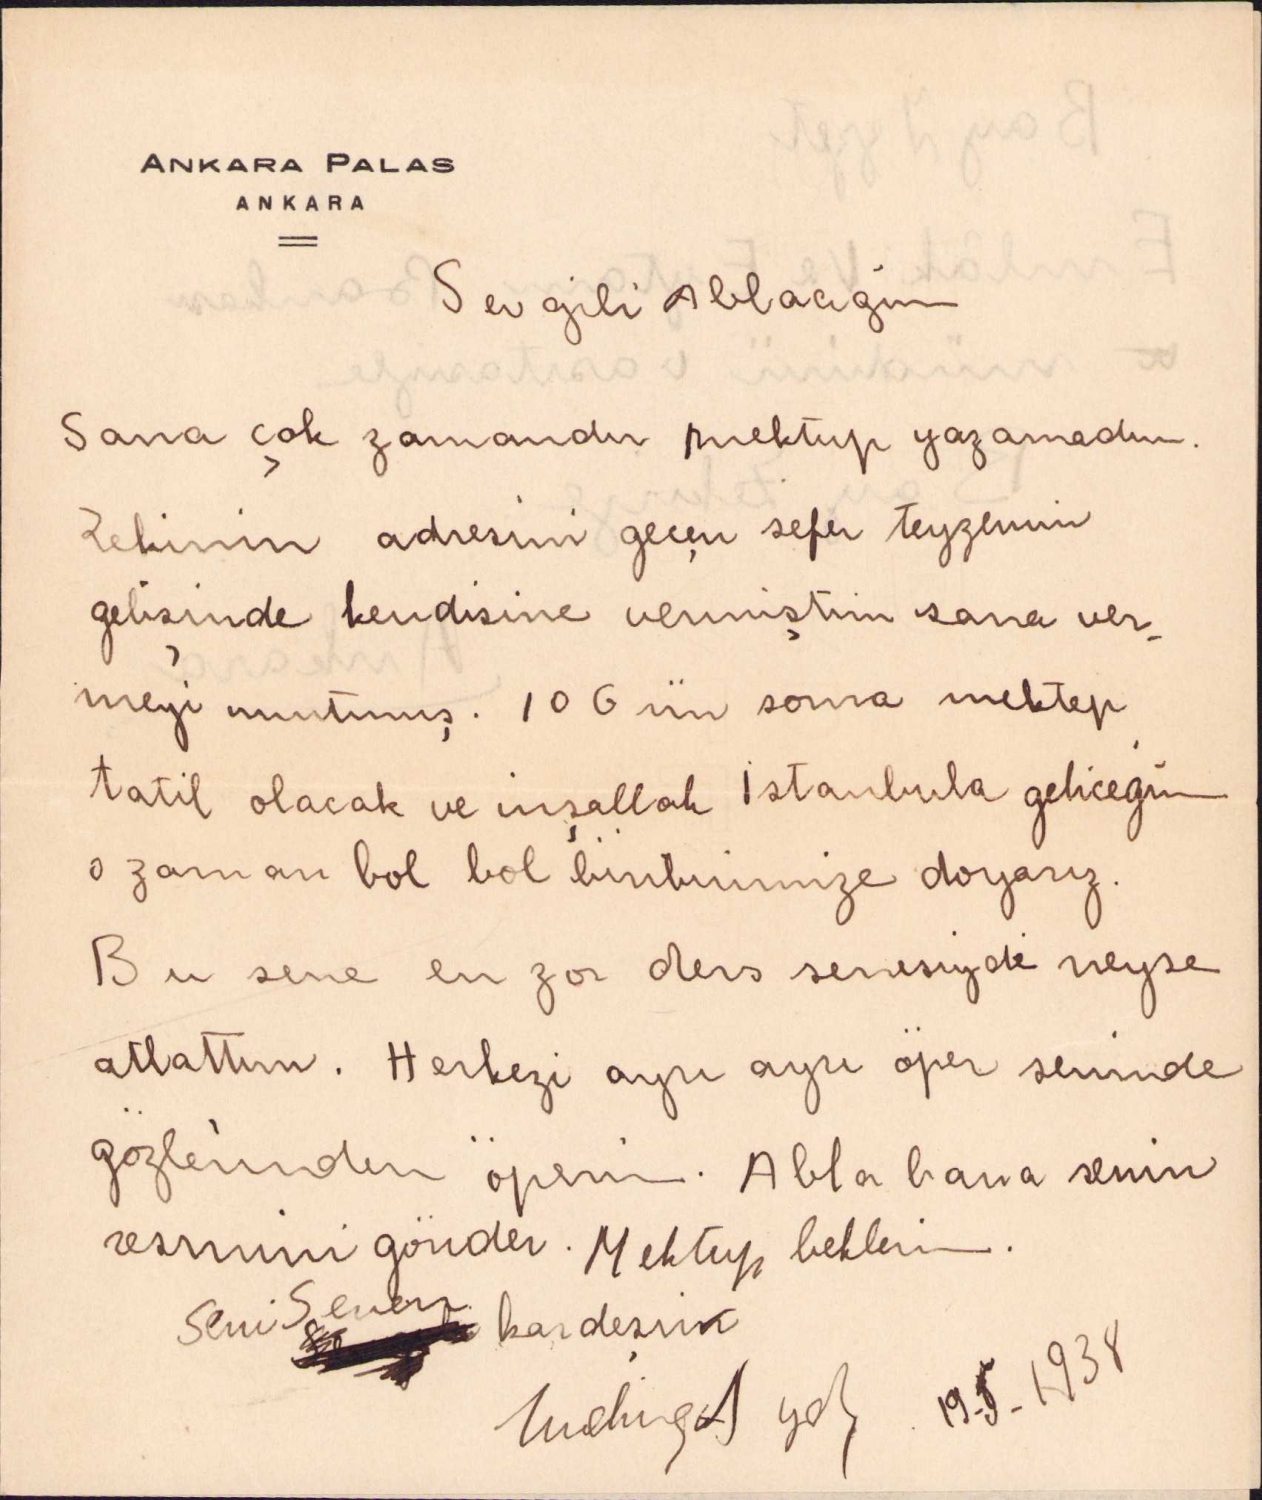 ANKARA PALAS
ANKARA
Sevgili Ablacığım
Sana çok zamandır mektup yazamadım.
Zekinin adresini geçen sefer teyzemin
gelişinde kendisine vermiştim sana ver-
meyi unutmuş. 10 Gün sonra mektep
tatil olacak ve inşallah İstanbula geliceğim
o zaman bol bol birbirimize doyarız.
Bu sene en zor ders senesiydi neyse
atlattım. Herkezi ayrı ayrı öper seninde
gözlerinden öperim. Abla bana senin
resmini gönder. Mektup beklerim.
Seni Seven kardeşin
19-5-1938